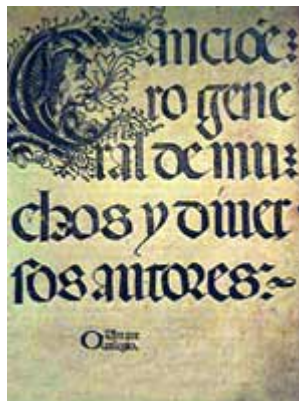 Canciõe⸗
ro gene
ral de mu⸗
chos y diuer
sos autores:~